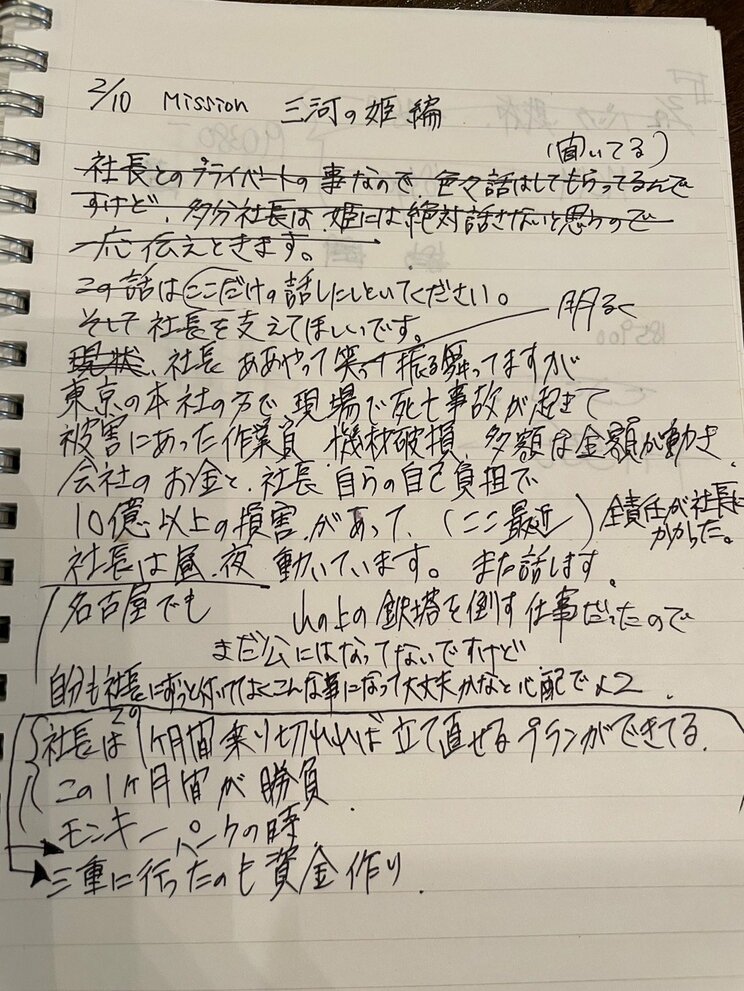 2/10 Mission 三河の姫編
(聞いてる)
社長とのプライベートの事なので、色々話はしてもらってるんで
すけど、多分社長は姫には絶対話さないと思うので
一応伝えときます。
この話はここだけの話しにしといてください。
そして社長を支えてほしいです。
明るく
現状、社長 ああやって笑って振る舞ってますが
東京の本社の方で現場で死亡事故が起きて
被害にあった作業員 機材破損、多額な金額が動き、
会社のお金と、社長自らの自己負担で
10億以上の損害があって、(ここ最近) 全責任が社長に
かかった。
社長は昼、夜 動いています。また話します。
名古屋でも 山の上の鉄塔を倒す仕事だったので
まだ公にはなってないですけど
自分も社長にずっと付いてて
こんな事になって大丈夫かなと心配で
社長はこの1ヶ月間乗り切れれば立て直せるプランができてる。
この1ヶ月間が勝負
モンキーパークの時
三重に行ったのも資金作り.